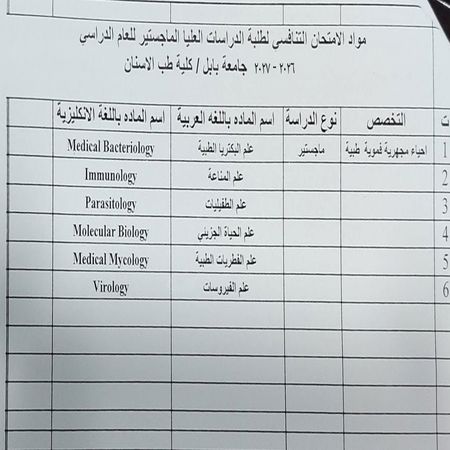 مواد الامتحان التنافسي لطلبة الدراسات العليا الماجستير للعام الدراسي
٢٠٢٦ - ٢٠٢٧ جامعة بابل / كلية طب الاسنان
ت التخصص نوع الدراسة اسم الماده باللغه العربية اسم الماده باللغة الانكليزية
1 احياء مجهرية فموية طبية ماجستير علم البكتريا الطبية Medical Bacteriology
2 علم المناعة Immunology
3 علم الطفيليات Parasitology
4 علم الحياة الجزيئي Molecular Biology
5 علم الفطريات الطبية Medical Mycology
6 علم الفيروسات Virology